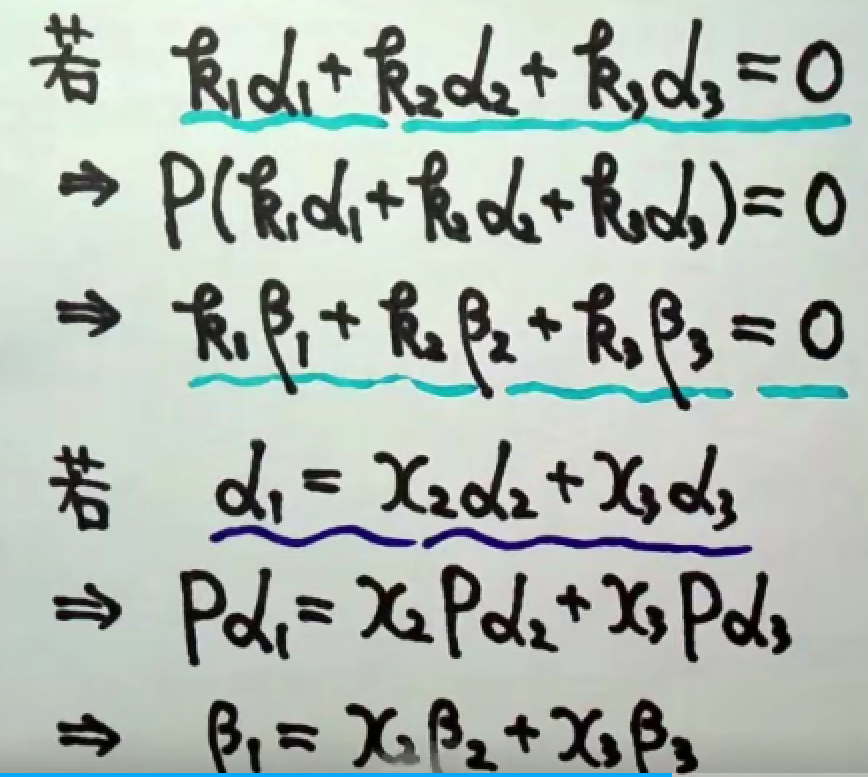 若 k₁α₁+k₂α₂+k₃α₃=0
⇒ P(k₁α₁+k₂α₂+k₃α₃)=0
⇒ k₁β₁+k₂β₂+k₃β₃=0
若 α₁=x₂α₂+x₃α₃
⇒ Pα₁=x₂Pα₂+x₃Pα₃
⇒ β₁=x₂β₂+x₃β₃